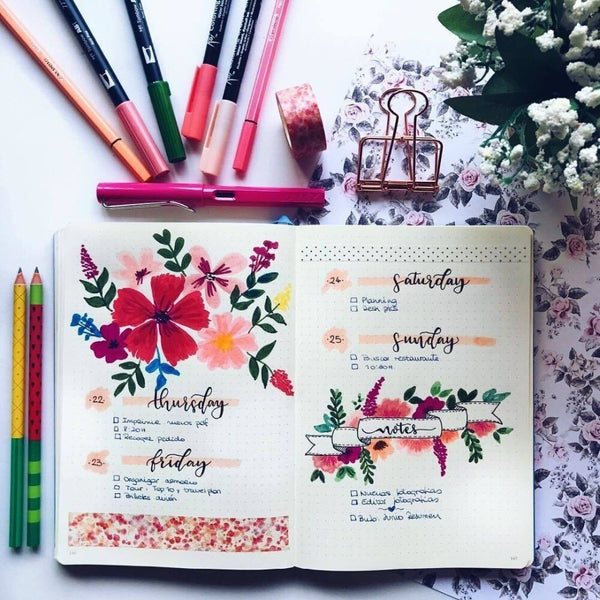 22
thursday
Imprimir nuevos pdf
8:20H
Recoger pedido
23
friday
Organizar armario
Tour: Top 10 y travel plan
Billetes
24
saturday
Planning
25
sunday
Buscar restaurante
10:00H
notes
Nuevas fotografías
Editar fotografías
BuJo: Junio Resumen